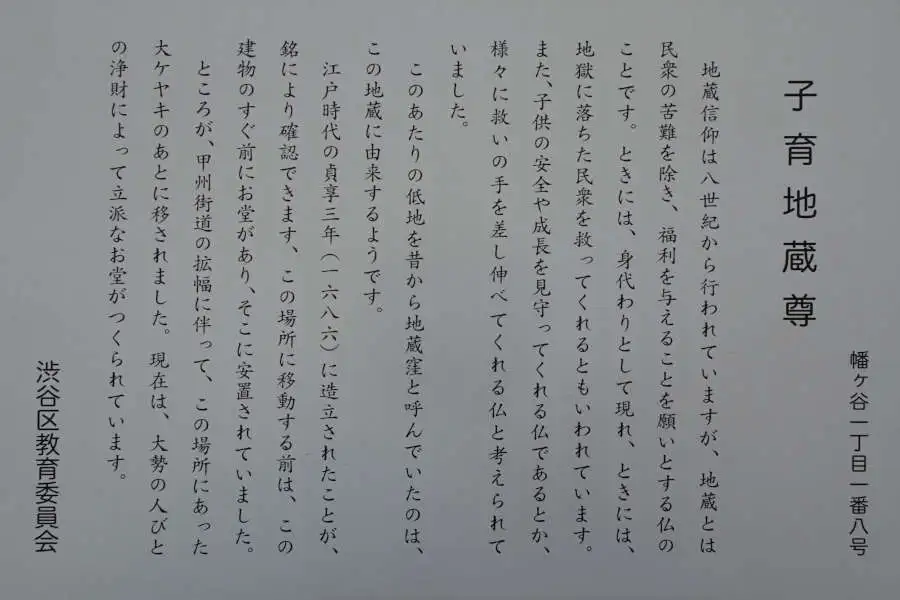 幡ヶ谷一丁目一番八号
子育地蔵尊
地蔵信仰は八世紀から行われていますが、地蔵とは
民衆の苦難を除き、福利を与えることを願いとする仏の
ことです。ときには、身代わりとして現れ、ときには、
地獄に落ちた民衆を救ってくれるともいわれています。
また、子供の安全や成長を見守ってくれる仏であるとか、
様々に救いの手を差し伸べてくれる仏と考えられて
いました。
このあたりの低地を昔から地蔵窪と呼んでいたのは、
この地蔵に由来するようです。
江戸時代の貞享三年（一六八六）に造立されたことが、
銘により確認できます、この場所に移動する前は、この
建物のすぐ前にお堂があり、そこに安置されていました。
ところが、甲州街道の拡幅に伴って、この場所にあった
大ケヤキのあとに移されました。現在は、大勢の人びと
の浄財によって立派なお堂がつくられています。
渋谷区教育委員会